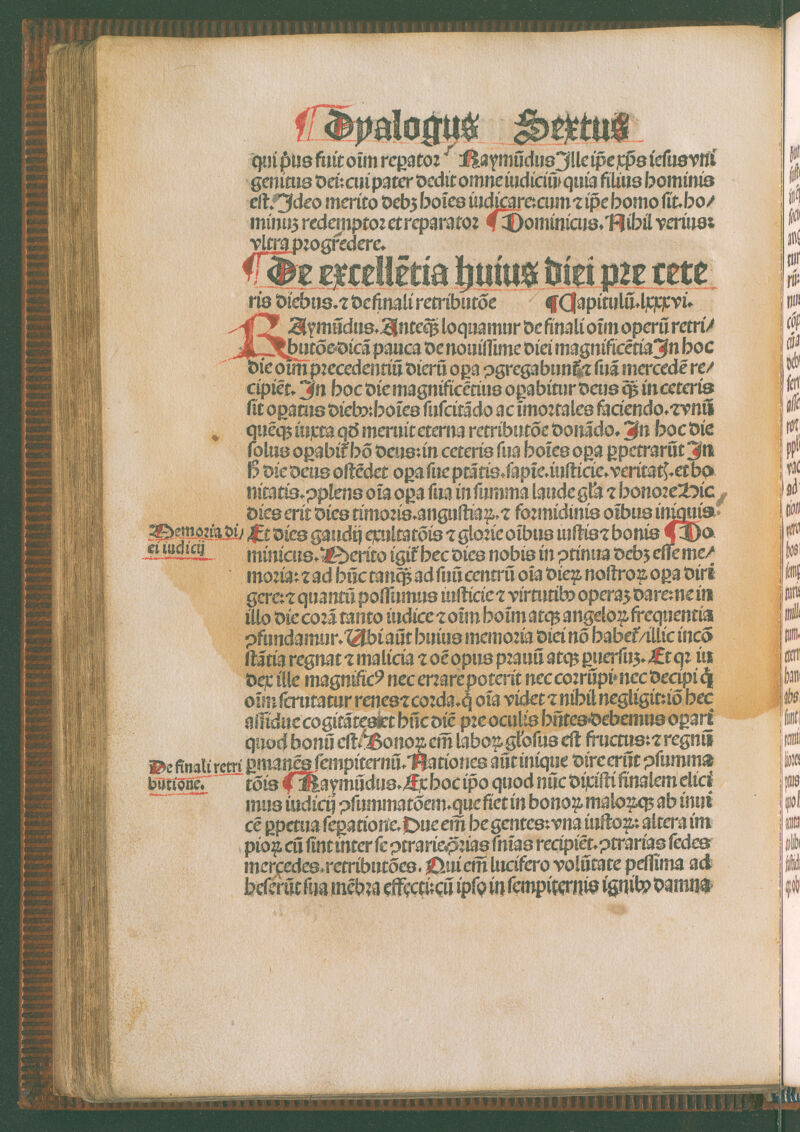 ¶ Dyalogus Sextus
qui p̄us fuit oīm reꝑatoꝛ Raymūdus Jlle ip̄e xp̄s iesus vni
genitus dei: cui pater dedit omne iudiciū quia filius hominis
est. Jdeo merito debꝫ hoīes iudicare: cum ⁊ ip̄e homo sit. ho/
minuꝫ redemptoꝛ et reparatoꝛ ¶ Dominicus. Nihil verius:
vltra pꝛogr̄edere.
¶ De excellētia huius diei pꝛe cete
ris diebus. ⁊ de finali retributōe ¶ Capitulū. lxxxvi.
RAymūdus. Anteq̄ꝫ loquamur de finali oīm operū retri/
butōe dicā pauca de nouissime diei magnificētia Jn hoc
die oīm pꝛecedentiū dierū oꝑa ꝯgregabunt̄ ⁊ suā mercedē re/
cipiēt. Jn hoc die magnificētius oꝑabitur deus q̄ꝫ in ceteris
sit oꝑatus diebꝰ: hoīes suscitādo ac īmoꝛtales faciendo. ⁊ vnū
quēqꝫ iuxta qd̄ meruit eterna retributōe donādo. Jn hoc die
solus oꝑabit̄ hō deus: in ceteris sua hoīes oꝑa ꝑpetrarūt Jn
h̄ die deus ostēdet oꝑa sue ptātis. sapīe. iusticie. veritatꝭ. et bo
nitatis. ꝯplens oīa oꝑa sua in summa laude gl̄a ⁊ honoꝛe Hic
dies erit dies timoꝛis. angustiaꝝ. ⁊ foꝛmidinis oībus iniquis.
Memoꝛia di/
ei iudicij
Et dies gaudij exultatōis ⁊ gloꝛie oībus iustis ⁊ bonis ¶ Do
minicus. Merito igit̄ hec dies nobis in ꝯtinua debꝫ esse me/
moꝛia: ⁊ ad hūc tanq̄ꝫ ad suū centrū oīa dieꝝ nostroꝝ oꝑa diri
gere: ⁊ quantū possumus iusticie ⁊ virtutibꝰ operaꝫ dare: ne in
illo die coꝛā tanto iudice ⁊ oīm hoīm atqꝫ angeloꝝ frequentia
ꝯfundamur. Ubi aūt huius memoꝛia diei nō habet̄/ illic incō
stātia regnat ⁊ malicia ⁊ oē opus pꝛauū atqꝫ ꝑuersuꝫ. Et qꝛ iu
dex ille magnificꝰ nec errare poterit nec coꝛrūpi. nec decipi q̄
oīm scrutatur renes ⁊ coꝛda. q̄ oīa videt ⁊ nihil negligit: iō hec
assidue cogitātes et hūc diē pꝛe oculis hn̄tes debemus oꝑari
quod bonū est. Bonoꝝ em̄ laboꝝ gl̄osus est fructus: ⁊ regnū
De finali retri
butione.
ꝑmanēs sempiternū. Nationes aūt inique dire erūt ꝯsumma
tōis ¶ Raymūdus. Ex hoc ip̄o quod nūc dixisti finalem elici
mus iudicij ꝯsummatōem. que fiet in bonoꝝ maloꝝqꝫ ab inui
cē ꝑpetua seꝑatione. Due em̄ he gentes: vna iustoꝝ: altera im
pioꝝ cū sint inter se ꝯtrarie ꝯ̄rias sn̄ias recipiēt. ꝯtrarias sedes
mercedes. retributōes. Qui em̄ lucifero volūtate pessima ad
heserūt sua mēbꝛa effecti: cū ipso in sempiternis ignibꝰ damna